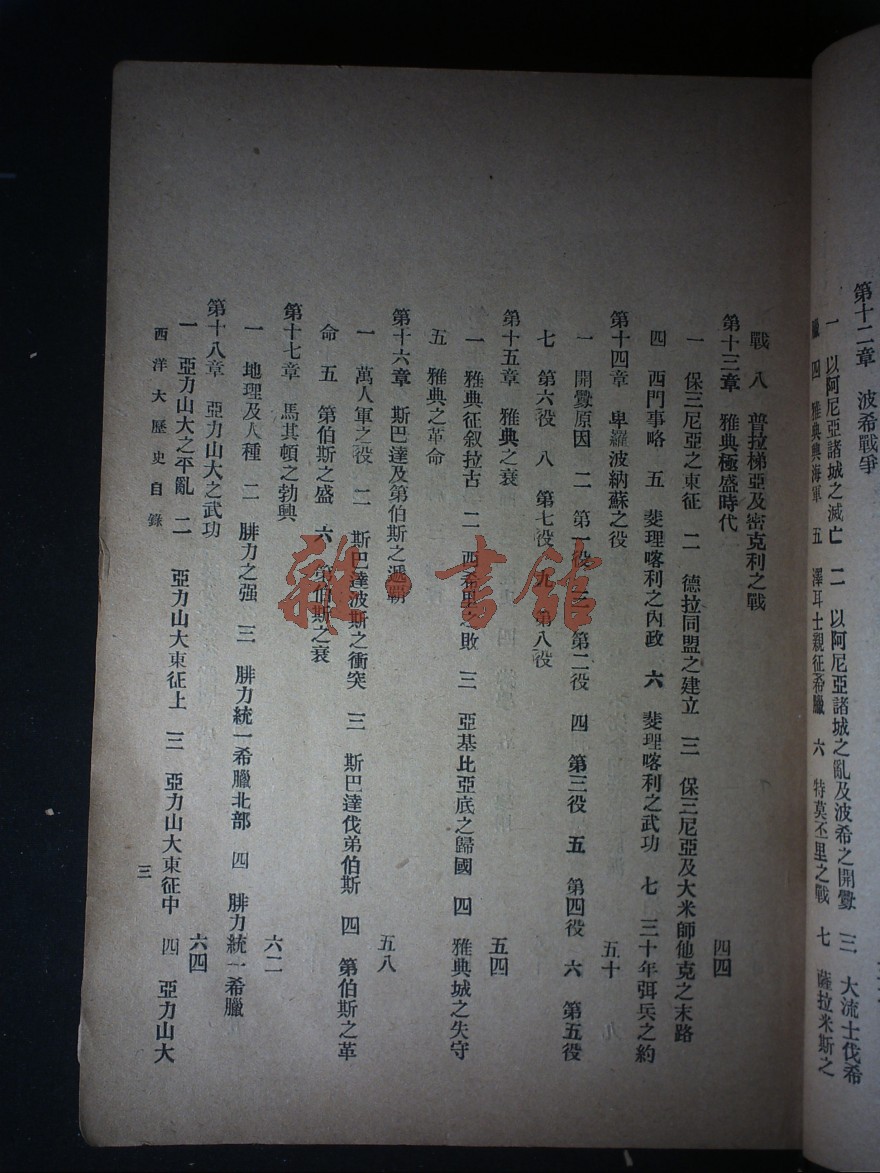 第十二章　波希戰爭
一　以阿尼亞諸城之滅亡　二　以阿尼亞諸城之亂及波希之開釁　三　大流士伐希
臘　四　雅典興海軍　五　澤耳士親征希臘　六　特莫丕里之戰　七　薩拉米斯之
戰　八　普拉梯亞及密克利之戰
第十三章　雅典極盛時代　四四
一　保三尼亞之東征　二　德拉同盟之建立　三　保三尼亞及大米師他克之末路
四　西門事略　五　斐理喀利之內政　六　斐理喀利之武功　七　三十年弭兵之約
第十四章　卑羅波納蘇之役　五十
一　開釁原因　二　第一役　三　第二役　四　第三役　五　第四役　六　第五役
七　第六役　八　第七役　九　第八役
第十五章　雅典之衰　五四
一　雅典征叙拉古　二　西希里之敗　三　亞基比亞底之歸國　四　雅典城之失守
五　雅典之革命
第十六章　斯巴達及第伯斯之遞霸　五八
一　萬人軍之役　二　斯巴達波斯之衝突　三　斯巴達伐弟伯斯　四　第伯斯之革
命　五　第伯斯之盛　六　第伯斯之衰
第十七章　馬其頓之勃興　六二
一　地理及人種　二　腓力之强　三　腓力統一希臘北部　四　腓力統一希臘
第十八章　亞力山大之武功　六四
一　亞力山大之平亂　二　亞力山大東征上　三　亞力山大東征中　四　亞力山大
西洋大歷史目錄　三
雜·書館